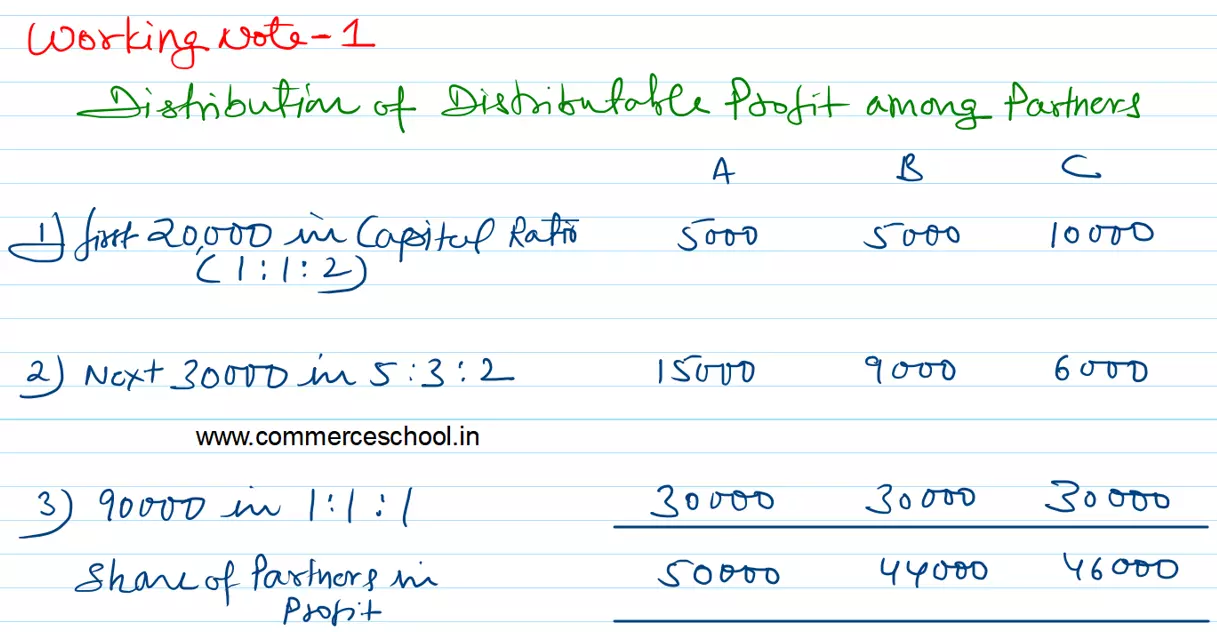 Working Note-1
Distribution of Distributable Profit among Partners
A B C
1) first 20,000 in Capital Ratio 5000 5000 10000
(1:1:2)
2) Next 30000 in 5:3:2 15000 9000 6000
www.commerceschool.in
3) 90000 in 1:1:1 30000 30000 30000
Share of Partners in 50000 44000 46000
Profit